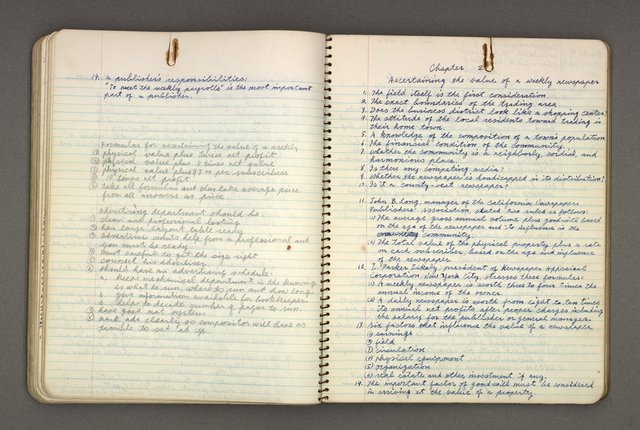 19. a publisher's responsibilities:
"To meet the weekly payrolls" is the most important
part of a publisher.
formulas for ascertaining the value of a weekly
physical value plus since net profit
physical value plus
physical value plus per subscribers
net profit
take all formulas and then take average price
from all answers as price
advertising department should be:
clean and professional looking
has large layout table ready
advertiser wants help from a professional and
you must be ready
must careful to get the size right
counsel his advertiser
should have an advertising schedule
a. keeps mechanical department in the running
as what to run, where to run and how long
b. give information available for bookkeeper
c. helps to decide number of pages to run.
have good mat system
mark ads clearly so compositor will have no
trouble to set ad up.
Chapter 2
Ascertaining the value of a weekly newspaper
1. The field itself is the first consideration.
2. The exact boundaries of the trading area
3. Does the business district look like a shopping center?
4. The attitude of the local residents toward trading in
their home town.
5. A knowledge of the composition of a town's population
6. The financial condition of the community.
7. Whether the community is a neighborly, cordial, and
harmonious place.
8. Is there any competing media?
9. Whether newspaper is handicapped in its distribution?
10. Is it a county-seat newspaper?
11. John B. Long, manager of the California Newspapers
Publishers' Association, states two rules as follows:
(1) The average gross annual volume plus good will based
on the age of the newspaper and its influence in the
community.
(2) The total value of the physical property plus a rate
on each subscriber based on the age and influence
of the newspaper.
12. I. Parker Likely, president of Newspaper Appraisal
Corporation, New York City, stresses these formulas:
(1) A weekly newspaper is worth three to four times the
annual income of the owner.
(2) A daily newspaper is worth from eight to ten times
its annual net profits after proper charges including
the salary for the publisher or general manager.
13. Six factors that influence the value of a newspaper.
(1) earnings
(2) field
(3) circulation
(4) physical equipment
(5) organization
(6) real estate and other investment if any.
14. The important factor of good will must be considered
in arriving at the value of a property.